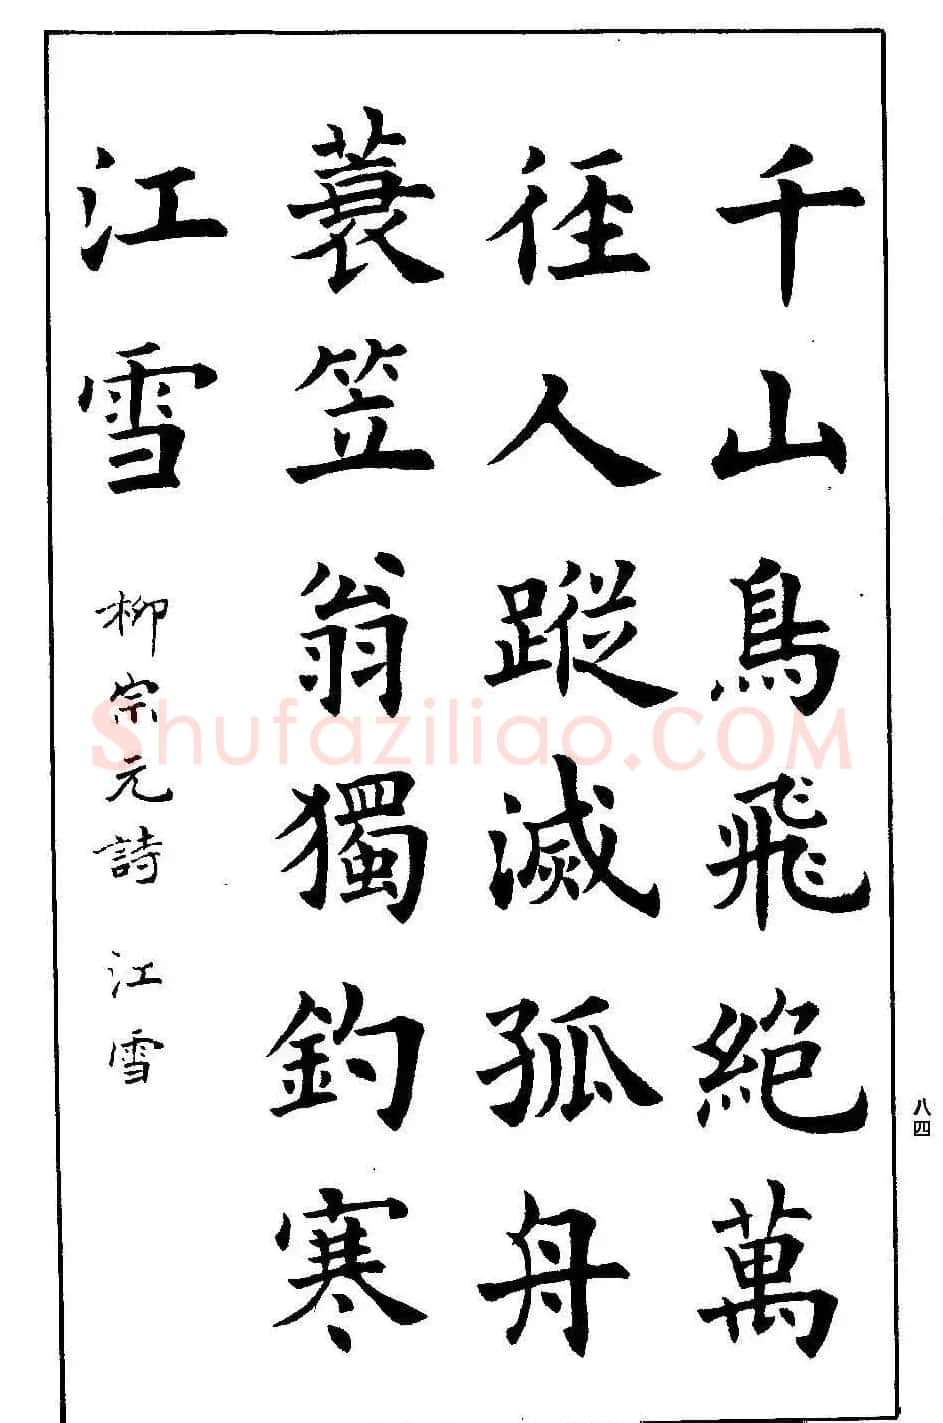 千山鳥飛絕萬
徑人蹤滅孤舟
蓑笠翁獨釣寒
江雪
柳宗元詩 江雪
八四
Shufaziliao.COM